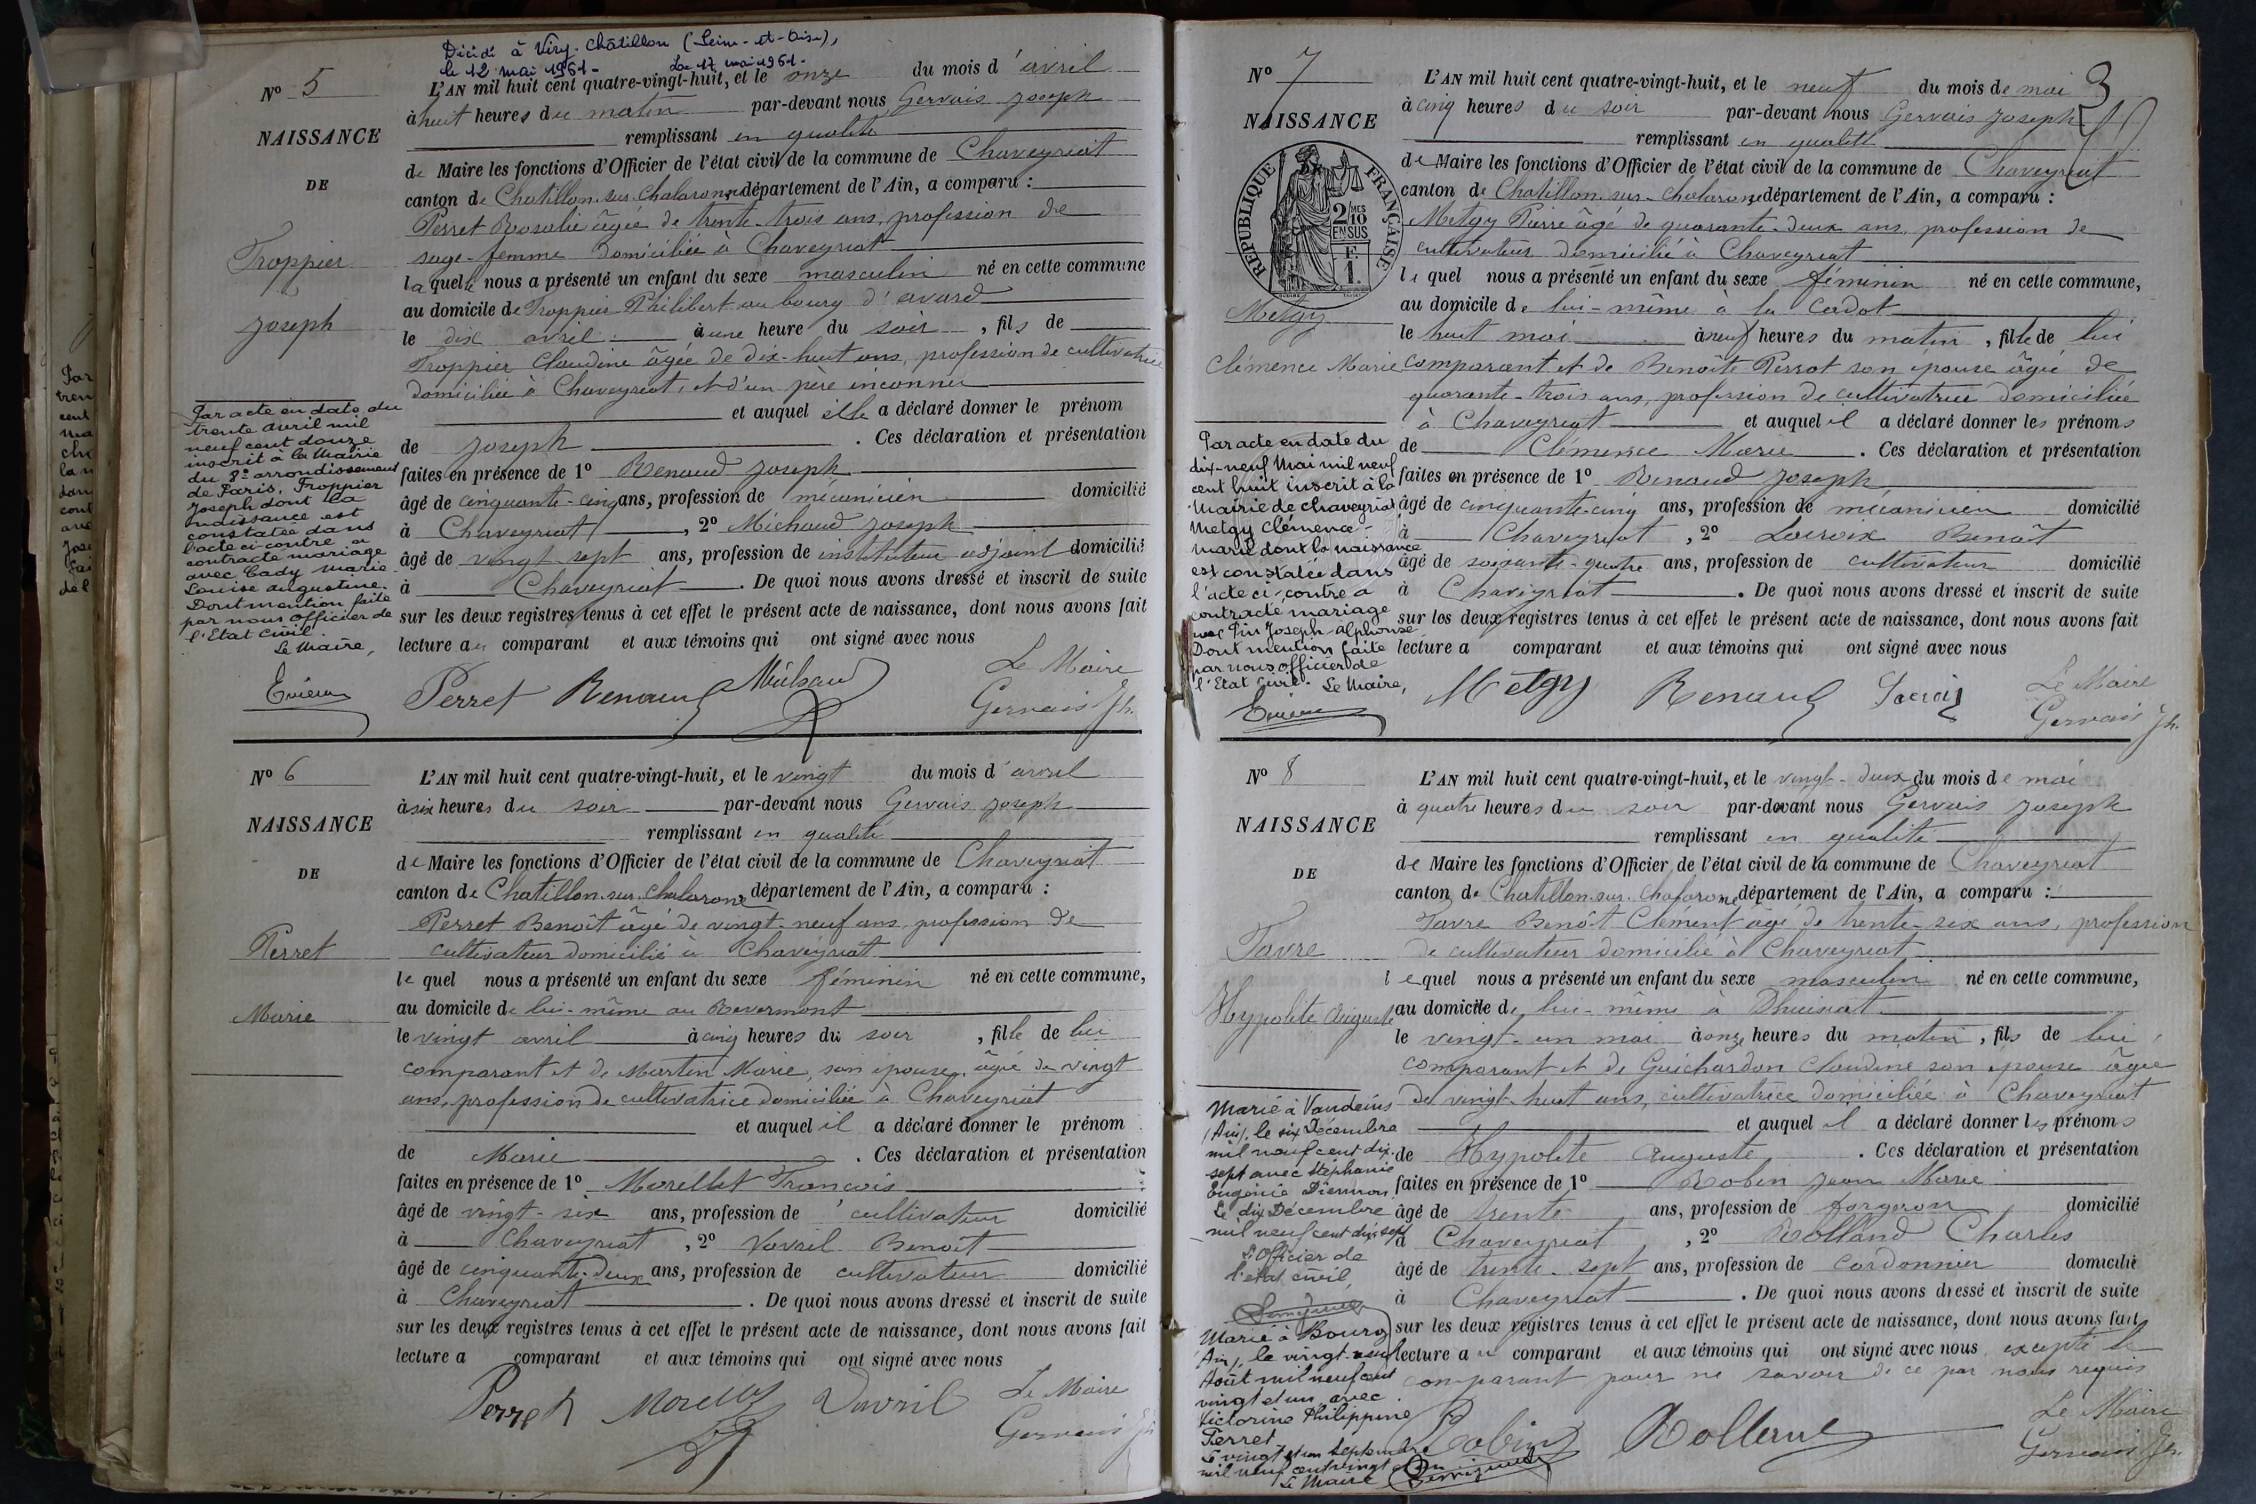 Décédé à Viry-Châtillon (Seine-et-Oise),
le 12 mai 1961. Le 17 mai 1961.
N° 5
NAISSANCE
DE
Troppier
Joseph
Par acte en date du
trente avril mil
neuf cent douze
inscrit à la Mairie
du 8e arrondissement
de Paris, Troppier
Joseph dont la
naissance est
constatée dans
l'acte ci-contre a
contracté mariage
avec Cady Marie
Louise Augustine.
Dont mention faite
par nous officier de
l'Etat Civil.
Le Maire,
L'AN mil huit cent quatre-vingt-huit, et le onze du mois d'avril
à huit heures du matin par-devant nous Gervais Joseph
remplissant en qualité
de Maire les fonctions d'Officier de l'état civil de la commune de Chaveyriat
canton de Chatillon-sur-Chalaronne département de l'Ain, a comparu :
Perret Rosalie âgée de trente-trois ans, profession de
sage-femme domiciliée à Chaveyriat
laquelle nous a présenté un enfant du sexe masculin né en cette commune
au domicile de Troppier Philibert au bourg d'avard
le dix avril à une heure du soir, fils de
Troppier Claudine âgée de dix-huit ans, profession de cultivatrice
domiciliée à Chaveyriat, et d'un père inconnu
et auquel elle a déclaré donner le prénom
de Joseph. Ces déclaration et présentation
faites en présence de 1° Renaud Joseph
âgé de cinquante-cinq ans, profession de mécanicien domicilié
à Chaveyriat, 2° Michaud Joseph
âgé de vingt-sept ans, profession de instituteur adjoint domicilié
à Chaveyriat. De quoi nous avons dressé et inscrit de suite
sur les deux registres tenus à cet effet le présent acte de naissance, dont nous avons fait
lecture au comparant et aux témoins qui ont signé avec nous
Perret Renaud Michaud Le Maire
Gervais Jh.
N° 6
NAISSANCE
DE
Perret
Marie
L'AN mil huit cent quatre-vingt-huit, et le vingt du mois d'avril
à six heures du soir par-devant nous Gervais Joseph
remplissant en qualité
de Maire les fonctions d'Officier de l'état civil de la commune de Chaveyriat
canton de Chatillon-sur-Chalaronne département de l'Ain, a comparu :
Perret Benoît âgé de vingt-neuf ans, profession de
cultivateur domicilié à Chaveyriat
lequel nous a présenté un enfant du sexe féminin né en cette commune,
au domicile de lui-même au Revermont
le vingt avril à cinq heures du soir, fille de lui
comparant et de Martin Marie, son épouse, âgée de vingt
ans, profession de cultivatrice domiciliée à Chaveyriat
et auquel il a déclaré donner le prénom
de Marie. Ces déclaration et présentation
faites en présence de 1° Morellet François
âgé de vingt-six ans, profession de cultivateur domicilié
à Chaveyriat, 2° Vavril Benoît
âgé de cinquante-deux ans, profession de cultivateur domicilié
à Chaveyriat. De quoi nous avons dressé et inscrit de suite
sur les deux registres tenus à cet effet le présent acte de naissance, dont nous avons fait
lecture a comparant et aux témoins qui ont signé avec nous
Perret Morellet Vavril Le Maire
Gervais Jh
N° 7
NAISSANCE
RÉPUBLIQUE FRANÇAISE
2 MES 10 EN SUS
F 1
Metgy
Clémence Marie
Par acte en date du
dix-neuf Mai mil neuf
cent huit inscrit à la
Mairie de Chaveyriat
Metgy Clémence-
Marie dont la naissance
est constatée dans
l'acte ci-contre a
contracté mariage
avec Joseph-Alphonse
Dont mention faite
par nous officier de
l'Etat Civil. Le Maire,
3
L'AN mil huit cent quatre-vingt-huit, et le neuf du mois de mai
à cinq heures du soir par-devant nous Gervais Joseph
remplissant en qualité
de Maire les fonctions d'Officier de l'état civil de la commune de Chaveyriat
canton de Chatillon-sur-Chalaronne département de l'Ain, a comparu :
Metgy Pierre âgé de quarante-deux ans, profession de
cultivateur domicilié à Chaveyriat
lequel nous a présenté un enfant du sexe féminin né en cette commune,
au domicile de lui-même à la Cadot
le huit mai à neuf heures du matin, fille de lui
comparant et de Benoîte Perrot son épouse âgée de
quarante-trois ans, profession de cultivatrice domiciliée
à Chaveyriat et auquel il a déclaré donner les prénoms
de Clémence Marie. Ces déclaration et présentation
faites en présence de 1° Renaud Joseph
âgé de cinquante-cinq ans, profession de mécanicien domicilié
à Chaveyriat, 2° Lacroix Benoît
âgé de soixante-quatre ans, profession de cultivateur domicilié
à Chaveyriat. De quoi nous avons dressé et inscrit de suite
sur les deux registres tenus à cet effet le présent acte de naissance, dont nous avons fait
lecture a comparant et aux témoins qui ont signé avec nous
Metgy Renaud Lacroix Le Maire
Gervais Jh.
N° 8
NAISSANCE
DE
Favre
Hypolite Auguste
Marié à Vandeins
(Ain), le six Décembre
mil neuf cent dix-
sept avec Stéphanie
Eugénie
Le dix Décembre
mil neuf cent dix sept
L'Officier de
l'état civil,
Marié à Bourg
(Ain), le vingt-neuf
Août mil neuf cent
vingt et un avec
Victorine Philippine
Perret
Le vingt et un Septembre
mil neuf cent vingt et un
Le Maire
L'AN mil huit cent quatre-vingt-huit, et le vingt-deux du mois de mai
à quatre heures du soir par-devant nous Gervais Joseph
remplissant en qualité
de Maire les fonctions d'Officier de l'état civil de la commune de Chaveyriat
canton de Chatillon-sur-Chalaronne département de l'Ain, a comparu :
Favre Benoît Clément âgé de trente-six ans, profession
de cultivateur domicilié à Chaveyriat
lequel nous a présenté un enfant du sexe masculin né en cette commune,
au domicile de lui-même à
le vingt-un mai à onze heures du matin, fils de lui
comparant et de Guichardon Claudine son épouse âgée
de vingt-huit ans, cultivatrice domiciliée à Chaveyriat
et auquel il a déclaré donner les prénoms
de Hypolite Auguste. Ces déclaration et présentation
faites en présence de 1° Robin Jean Marie
âgé de trente ans, profession de forgeron domicilié
à Chaveyriat, 2° Rolland Charles
âgé de trente-sept ans, profession de cordonnier domicilié
à Chaveyriat. De quoi nous avons dressé et inscrit de suite
sur les deux registres tenus à cet effet le présent acte de naissance, dont nous avons fait
lecture au comparant et aux témoins qui ont signé avec nous excepté le
comparant pour ne savoir de ce par nous requis
Robin Rolland Le Maire
Gervais Jh.